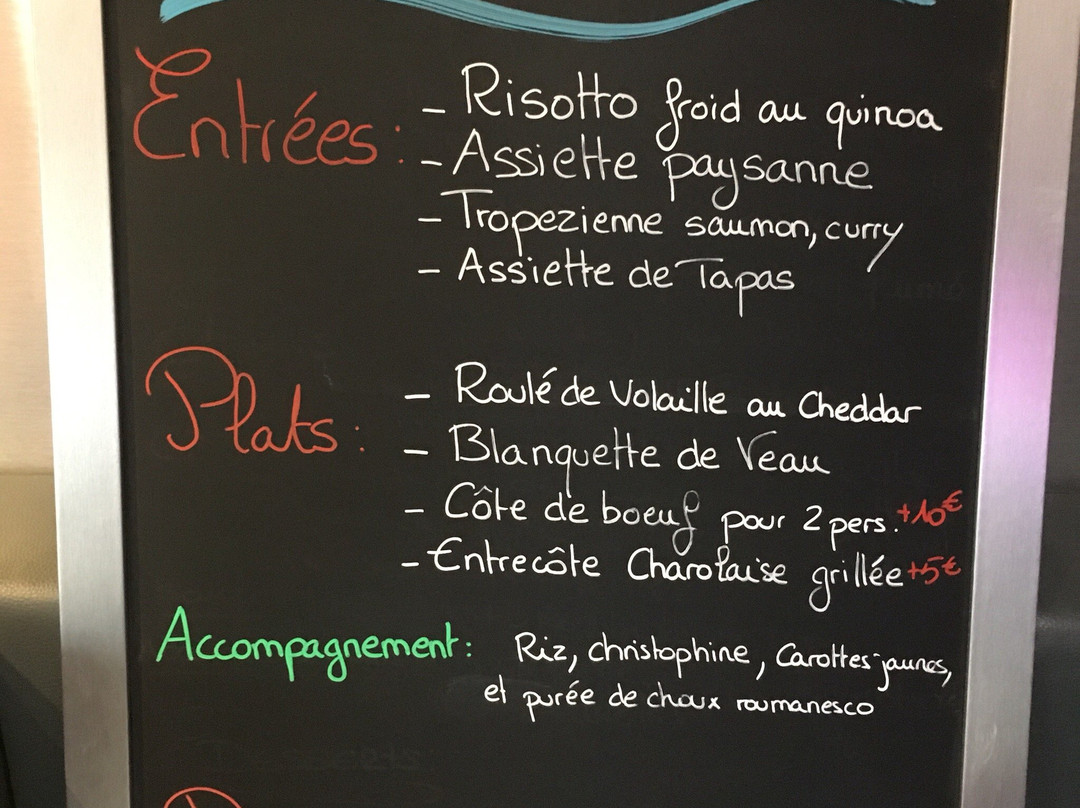 Entrées :
- Risotto froid au quinoa
- Assiette paysanne
- Tropezienne saumon, curry
- Assiette de Tapas
Plats :
- Roulé de Volaille au Cheddar
- Blanquette de Veau
- Côte de boeuf pour 2 pers. +10€
- Entrecôte Charolaise grillée +5€
Accompagnement : Riz, christophine, Carottes jaunes,
et purée de choux roumanesco